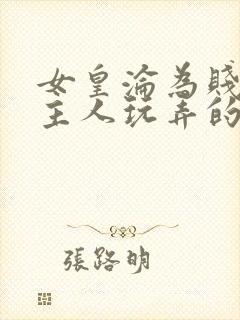 女皇淪為賤
主人玩弄的
張路明